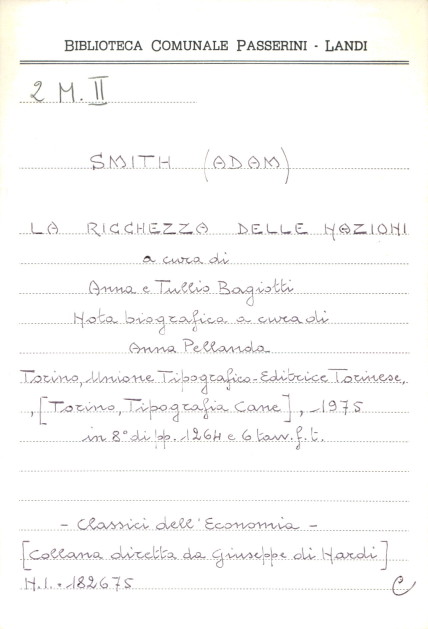 BIBLIOTECA COMUNALE PASSERINI - LANDI
2 M. II
SMITH (ADAM)
LA RICCHEZZA DELLE NAZIONI
a cura di
Anna e Tullio Bagiotti
Nota biografica a cura di
Anna Pellanda
Torino, Unione Tipografico-Editrice Torinese,
, [Torino, Tipografia Cane], 1975
in 8° di pp. 1264 e 6 tav. f. t.
- Classici dell'Economia -
[Collana diretta da Giuseppe di Nardi]
N.I. • 182675
C